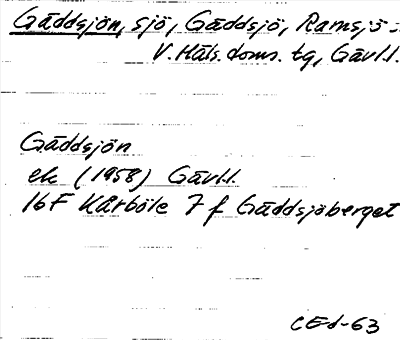 Gäddsjön, sjö, Gäddsjö, Ramsjö
V. Häls. doms. tg, Gävl.l.
Gäddsjön
ek (1958) Gävl.l.
16F Kårböle 7 f Gäddsjöberget
CEd-63